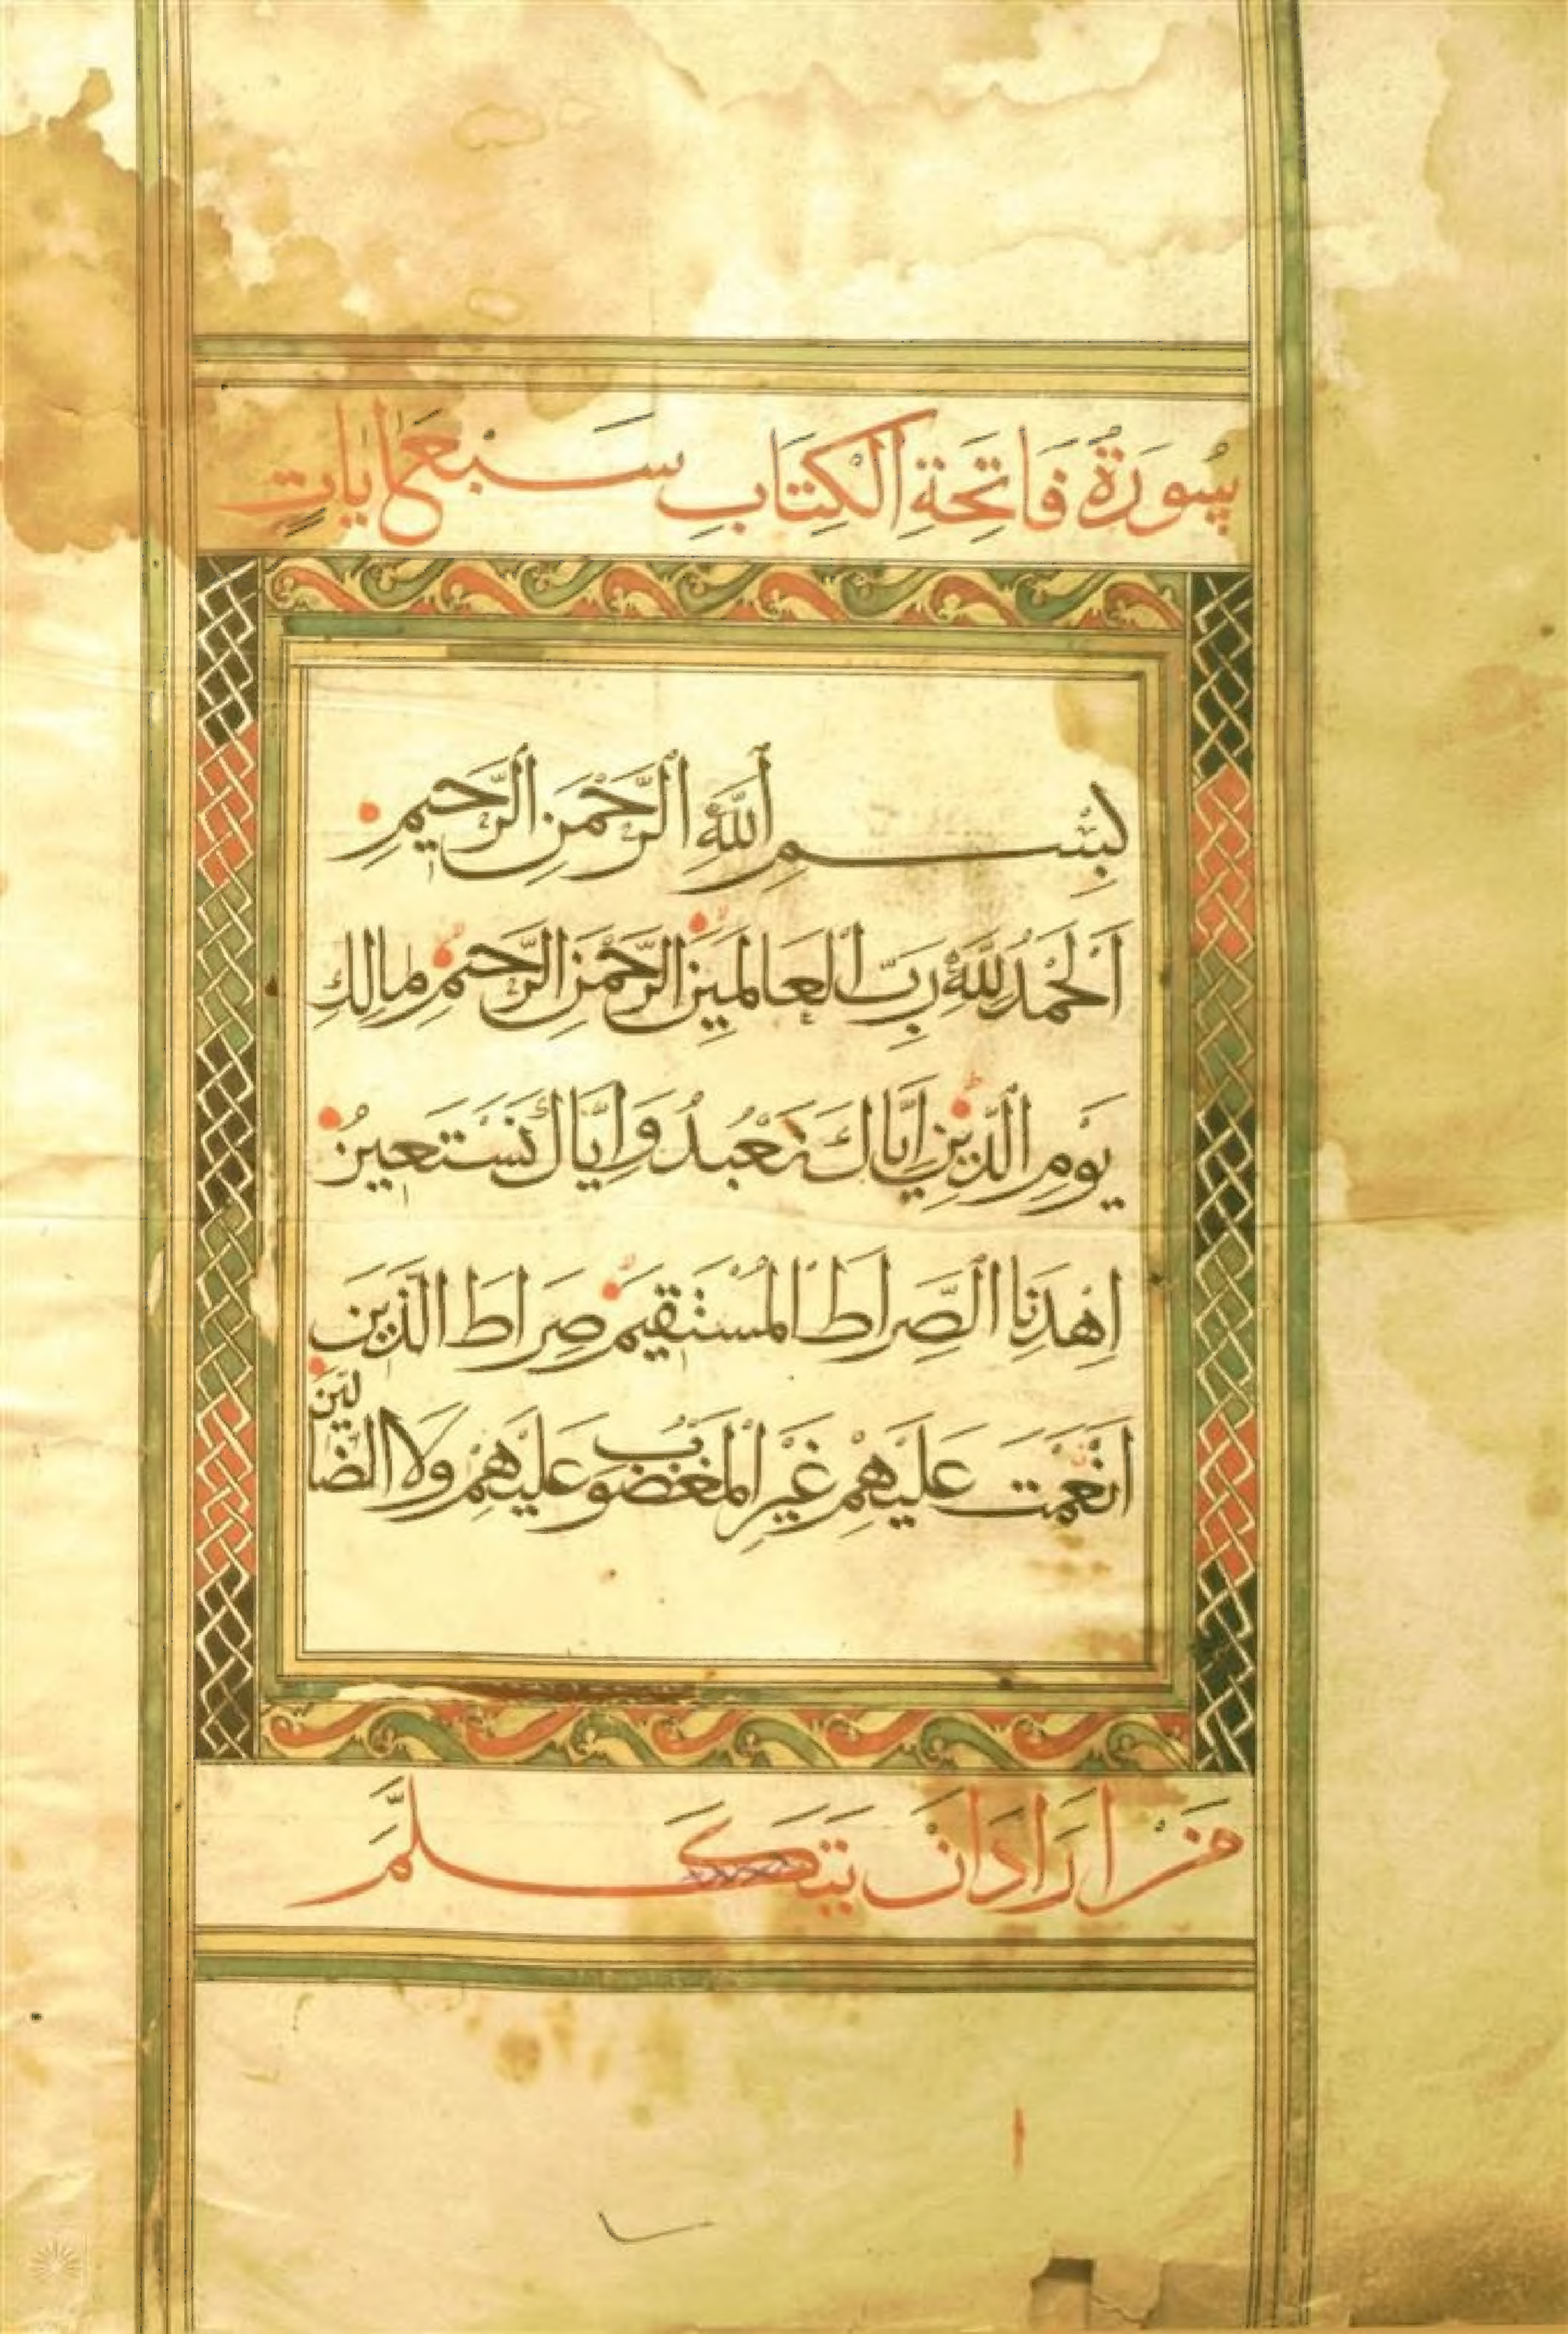 سُورَةُ فَاتِحَةِ الْكِتَابِ سَبْعَ اٰيَاتٍ
بِسْمِ اللَّهِ الرَّحْمَنِ الرَّحِيمِ
اَلْحَمْدُ لِلَّهِ رَبِّ الْعَالَمِينَ الرَّحْمَنِ الرَّحِيمِ مَالِكِ
يَوْمِ الدِّينِ اِيَّاكَ نَعْبُدُ وَاِيَّاكَ نَسْتَعِينُ
اِهْدِنَا الصِّرَاطَ الْمُسْتَقِيمَ صِرَاطَ الَّذِينَ
اَنْعَمْتَ عَلَيْهِمْ غَيْرِ الْمَغْضُوبِ عَلَيْهِمْ وَلَا الضَّالِّينَ
مَنْ اَرَادَ اَنْ يَتَكَلَّمَ